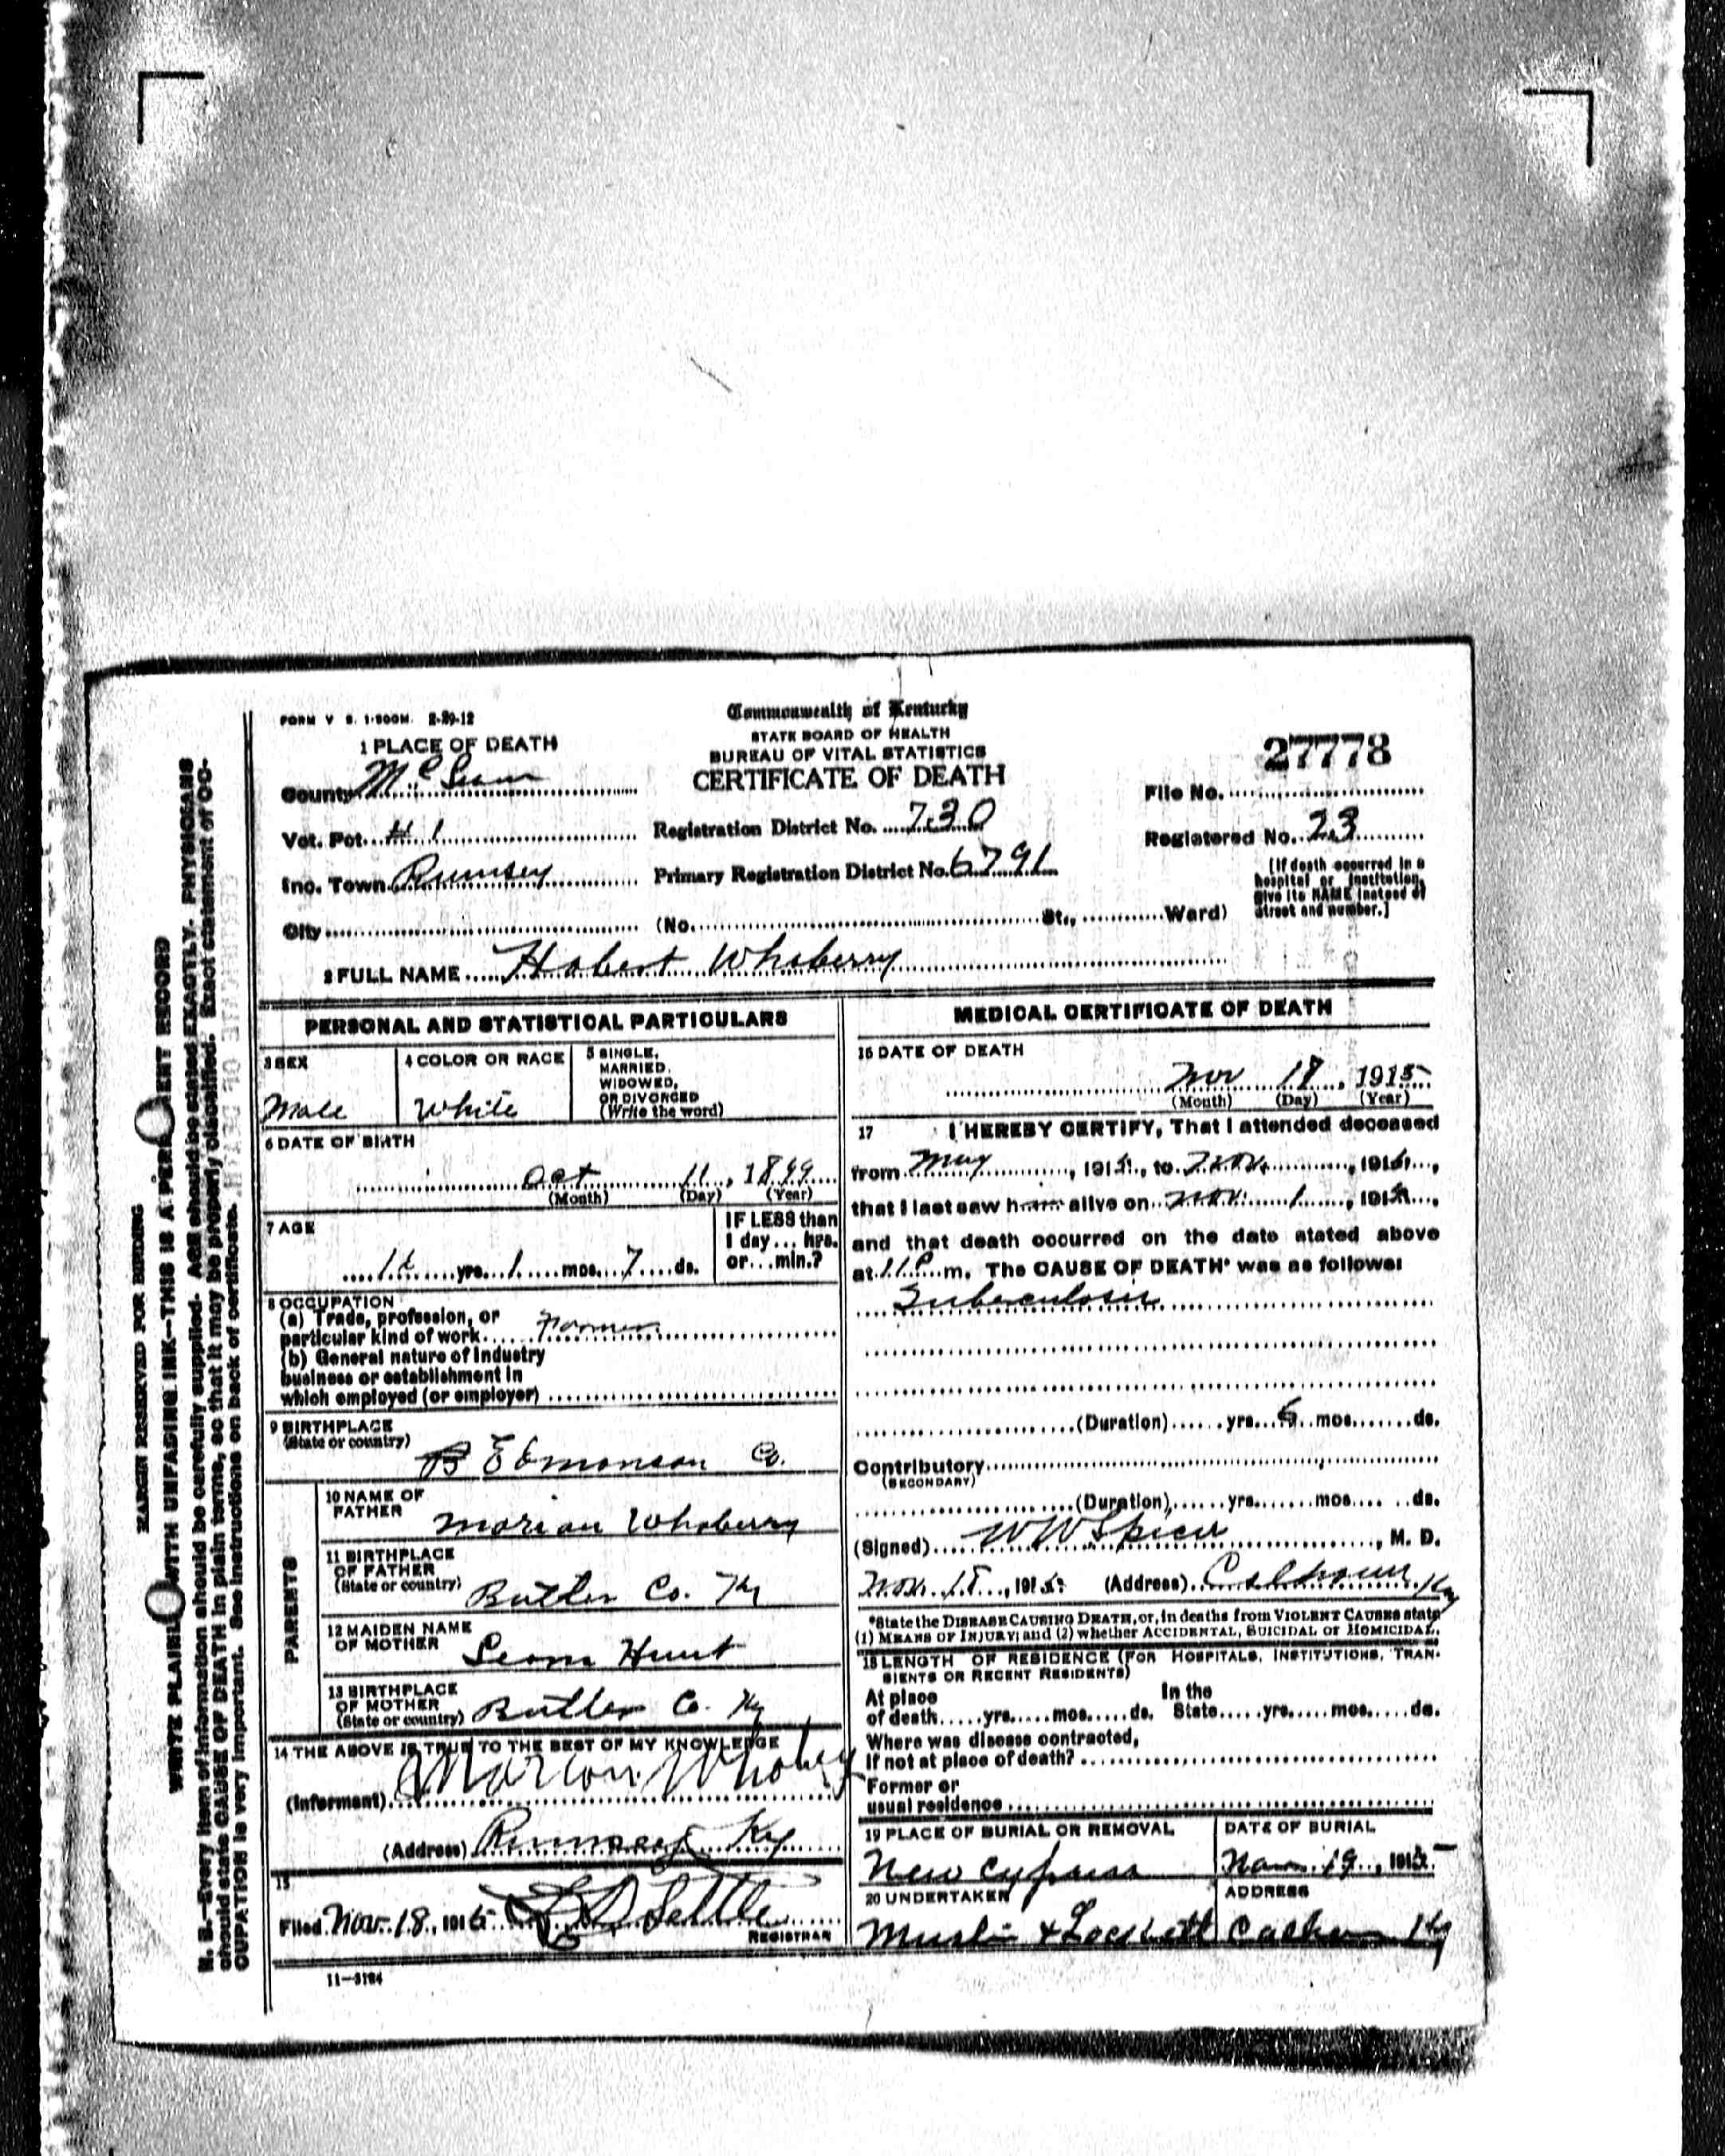 FORM V S. 1-500M 2-29-12
Commonwealth of Kentucky
STATE BOARD OF HEALTH
BUREAU OF VITAL STATISTICS
CERTIFICATE OF DEATH
27778
File No.
Registered No. 23
(If death occurred in a hospital or institution, give its NAME instead of street and number.)
1 PLACE OF DEATH
County McLean
Vot. Pct. # 1 Registration District No. 730
Inc. Town Rumsey Primary Registration District No. 6791
City (No. St., Ward)
2 FULL NAME Hobert Whoberry
PERSONAL AND STATISTICAL PARTICULARS
3 SEX
Male
4 COLOR OR RACE
White
5 SINGLE, MARRIED, WIDOWED, OR DIVORCED (Write the word)
6 DATE OF BIRTH
Oct 11, 1899
(Month) (Day) (Year)
7 AGE
yrs. 1 mos. 7 ds.
IF LESS than 1 day... hrs. or... min.?
8 OCCUPATION
(a) Trade, profession, or
particular kind of work Farmer
(b) General nature of industry
business or establishment in
which employed (or employer)
9 BIRTHPLACE
(State or country)
Edmonson Co.
PARENTS
10 NAME OF FATHER
Marion Whoberry
11 BIRTHPLACE OF FATHER
(State or country) Butler Co. Ky
12 MAIDEN NAME OF MOTHER
Leona Hunt
13 BIRTHPLACE OF MOTHER
(State or country) Butler Co. Ky
14 THE ABOVE IS TRUE TO THE BEST OF MY KNOWLEDGE
(Informant) Marion
(Address) Rumsey Ky
15
Filed Nov. 18, 1915 Settle
REGISTRAR
11-3184
MEDICAL CERTIFICATE OF DEATH
16 DATE OF DEATH
Nov 18, 1915
(Month) (Day) (Year)
17 I HEREBY CERTIFY, That I attended deceased
from May, 1915, to Nov., 1915,
that I last saw him alive on Nov. 1, 1915,
and that death occurred on the date stated above
at 11 P m. The CAUSE OF DEATH* was as follows:
Tuberculosis
(Duration) yrs. 6 mos. ds.
Contributory
(SECONDARY)
(Duration) yrs. mos. ds.
(Signed) W W Spicer, M. D.
Nov. 18, 1915 (Address) Calhoun Ky
*State the DISEASE CAUSING DEATH, or, in deaths from VIOLENT CAUSES state
(1) MEANS OF INJURY; and (2) whether ACCIDENTAL, SUICIDAL or HOMICIDAL.
18 LENGTH OF RESIDENCE (FOR HOSPITALS, INSTITUTIONS, TRAN-
SIENTS OR RECENT RESIDENTS)
At place of death yrs. mos. ds. In the State yrs. mos. ds.
Where was disease contracted,
If not at place of death?
Former or
usual residence
19 PLACE OF BURIAL OR REMOVAL
New Cypress
DATE OF BURIAL
Nov. 19, 1915
20 UNDERTAKER
& Lockett
ADDRESS
Calhoun Ky
MARGIN RESERVED FOR BINDING
WRITE PLAINLY WITH UNFADING INK—THIS IS A PERMANENT RECORD
N. B.—Every item of information should be carefully supplied. AGE should be stated EXACTLY. PHYSICIANS
should state CAUSE OF DEATH in plain terms, so that it may be properly classified. Exact statement of OC-
CUPATION is very important. See instructions on back of certificate.